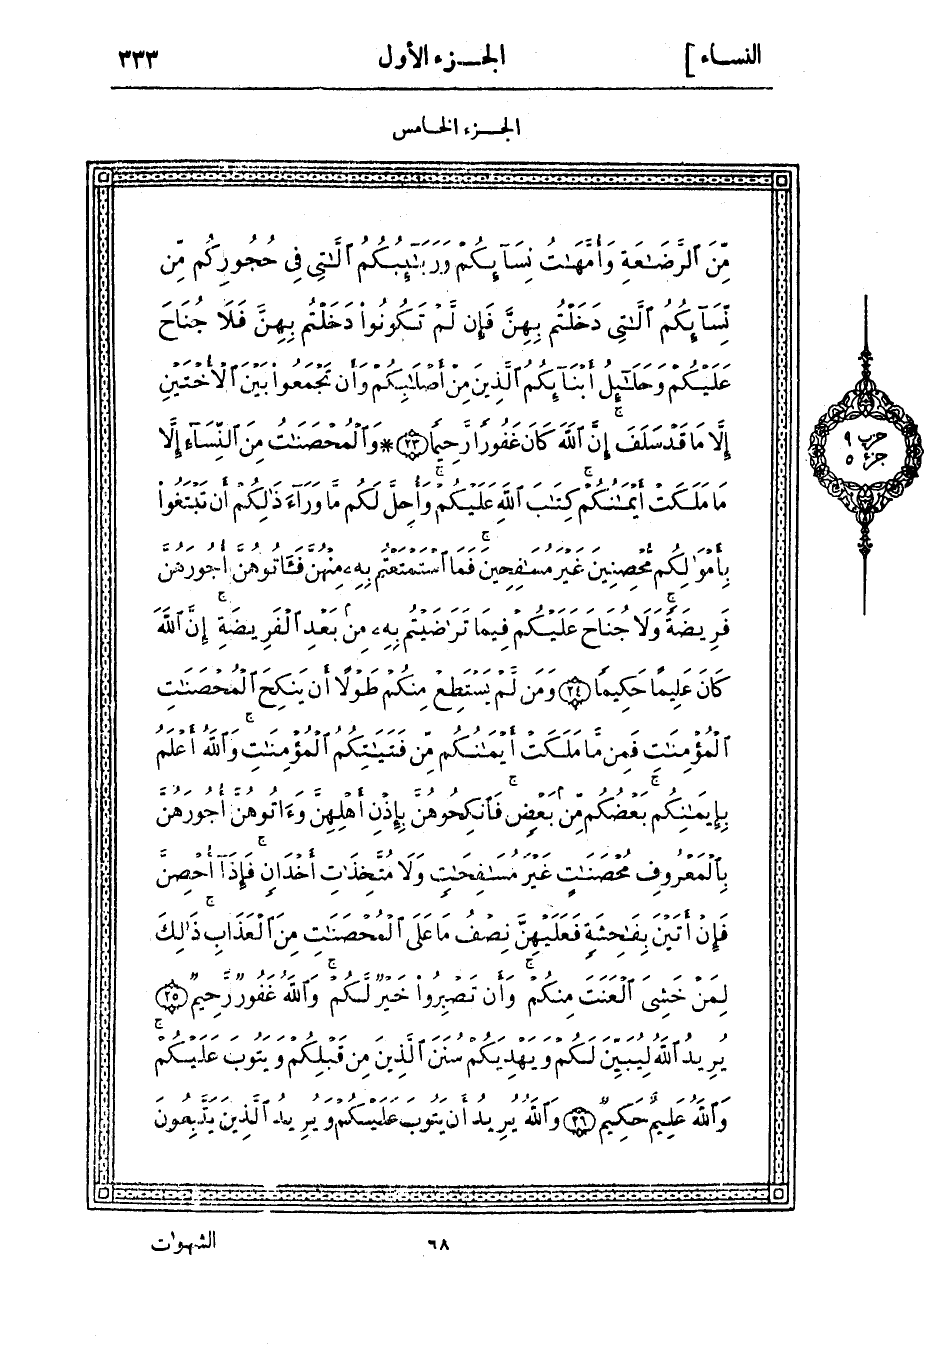 النساء]
الجزء الأول
٣٣٣
الجزء الخامس
مِّنَ ٱلرَّضَٰعَةِ وَأُمَّهَٰتُ نِسَآئِكُمْ وَرَبَٰٓئِبُكُمُ ٱلَّٰتِى فِى حُجُورِكُم مِّن
نِّسَآئِكُمُ ٱلَّٰتِى دَخَلْتُم بِهِنَّ فَإِن لَّمْ تَكُونُوا۟ دَخَلْتُم بِهِنَّ فَلَا جُنَاحَ
عَلَيْكُمْ وَحَلَٰٓئِلُ أَبْنَآئِكُمُ ٱلَّذِينَ مِنْ أَصْلَٰبِكُمْ وَأَن تَجْمَعُوا۟ بَيْنَ ٱلْأُخْتَيْنِ
إِلَّا مَا قَدْ سَلَفَ ۚ إِنَّ ٱللَّهَ كَانَ غَفُورًا رَّحِيمًا ﴿٢٣﴾ * وَٱلْمُحْصَنَٰتُ مِنَ ٱلنِّسَآءِ إِلَّا
مَا مَلَكَتْ أَيْمَٰنُكُمْ ۚ كِتَٰبَ ٱللَّهِ عَلَيْكُمْ ۚ وَأُحِلَّ لَكُم مَّا وَرَآءَ ذَٰلِكُمْ أَن تَبْتَغُوا۟
بِأَمْوَٰلِكُم مُّحْصِنِينَ غَيْرَ مُسَٰفِحِينَ ۚ فَمَا ٱسْتَمْتَعْتُم بِهِۦ مِنْهُنَّ فَـَٔاتُوهُنَّ أُجُورَهُنَّ
فَرِيضَةً ۚ وَلَا جُنَاحَ عَلَيْكُمْ فِيمَا تَرَٰضَيْتُم بِهِۦ مِنۢ بَعْدِ ٱلْفَرِيضَةِ ۚ إِنَّ ٱللَّهَ
كَانَ عَلِيمًا حَكِيمًا ﴿٢٤﴾ وَمَن لَّمْ يَسْتَطِعْ مِنكُمْ طَوْلًا أَن يَنكِحَ ٱلْمُحْصَنَٰتِ
ٱلْمُؤْمِنَٰتِ فَمِن مَّا مَلَكَتْ أَيْمَٰنُكُم مِّن فَتَيَٰتِكُمُ ٱلْمُؤْمِنَٰتِ ۚ وَٱللَّهُ أَعْلَمُ
بِإِيمَٰنِكُم ۚ بَعْضُكُم مِّنۢ بَعْضٍ ۚ فَٱنكِحُوهُنَّ بِإِذْنِ أَهْلِهِنَّ وَءَاتُوهُنَّ أُجُورَهُنَّ
بِٱلْمَعْرُوفِ مُحْصَنَٰتٍ غَيْرَ مُسَٰفِحَٰتٍ وَلَا مُتَّخِذَٰتِ أَخْدَانٍ ۚ فَإِذَآ أُحْصِنَّ
فَإِنْ أَتَيْنَ بِفَٰحِشَةٍ فَعَلَيْهِنَّ نِصْفُ مَا عَلَى ٱلْمُحْصَنَٰتِ مِنَ ٱلْعَذَابِ ۚ ذَٰلِكَ
لِمَنْ خَشِىَ ٱلْعَنَتَ مِنكُمْ ۚ وَأَن تَصْبِرُوا۟ خَيْرٌ لَّكُمْ ۚ وَٱللَّهُ غَفُورٌ رَّحِيمٌ ﴿٢٥﴾
يُرِيدُ ٱللَّهُ لِيُبَيِّنَ لَكُمْ وَيَهْدِيَكُمْ سُنَنَ ٱلَّذِينَ مِن قَبْلِكُمْ وَيَتُوبَ عَلَيْكُمْ ۚ
وَٱللَّهُ عَلِيمٌ حَكِيمٌ ﴿٢٦﴾ وَٱللَّهُ يُرِيدُ أَن يَتُوبَ عَلَيْكُمْ وَيُرِيدُ ٱلَّذِينَ يَتَّبِعُونَ
حزب ٩
جزء ٥
٦٨
الشهوات